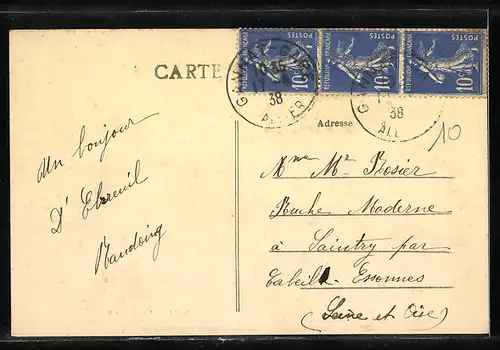 CARTE
REPUBLIQUE FRANÇAISE POSTES 10c
REPUBLIQUE FRANÇAISE POSTES 10c
REPUBLIQUE FRANÇAISE POSTES 10c
38
ALLIER
38
ALL
Adresse
10
Un bonjour
D' Ebreuil
Mme Mr Rosier
Ruche Moderne
à Saintry par
Corbeil - Essonnes
(Seine et Oise)